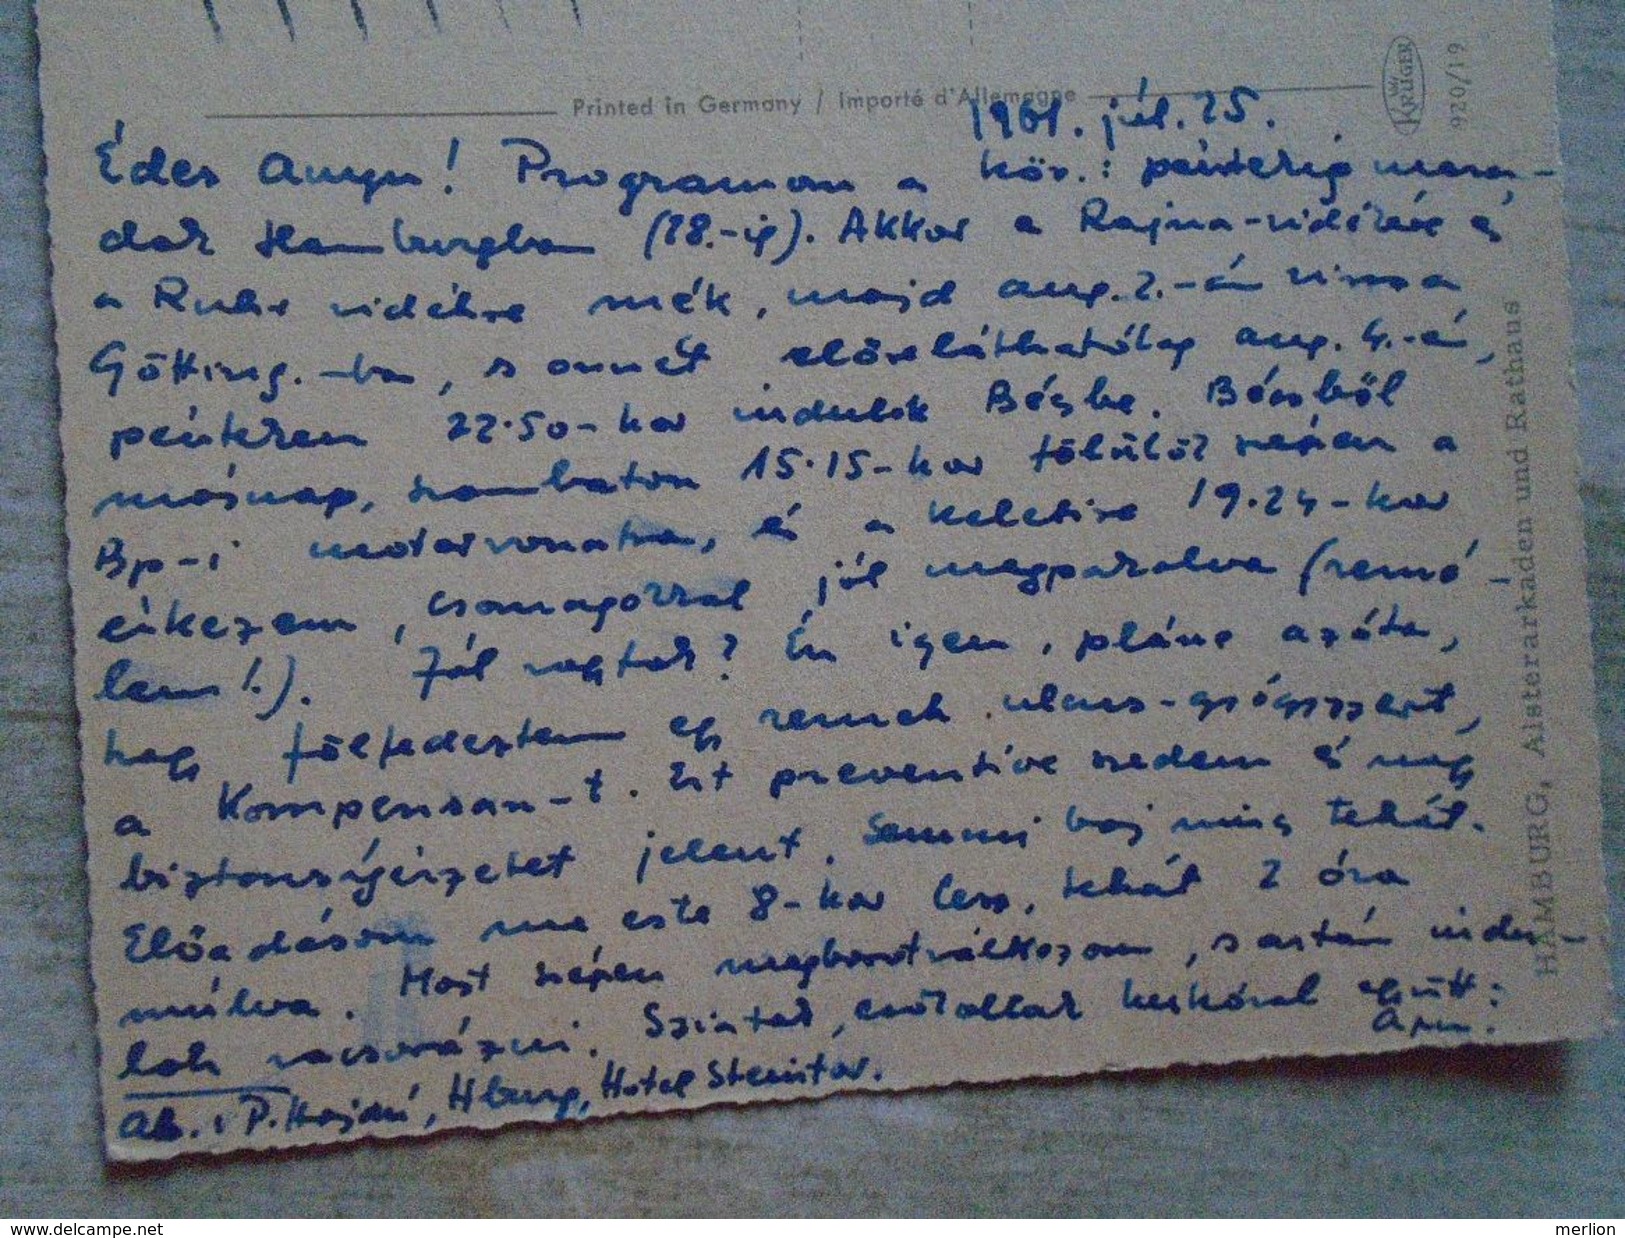 Printed in Germany / Importé d'Allemagne
KRÜGER
920/19
1961. júl. 25.
Édes Anyu! Programom a köv.: péntekig mara-
dok Hamburgban (28.-ig). Akkor a Rajna-vidékre és
a Ruhr vidékre mék, majd aug. 2.-án vissza
Götting.-ba, s onnét előreláthatólag aug. 4.-én,
pénteken 22.50-kor indulok Bécsbe. Bécsből
másnap, szombaton 15.15-kor fölülök szépen a
Bp-i motorvonatra, és a Keletire 19.24-kor
érkezem, csomagokkal jól megpakolva (remé-
lem!.). Jól vagytok? Én igen, pláne azóta,
hogy fölfedeztem egy remek ulcus-gyógyszert,
a Kompensan-t. Ezt preventíve szedem és nagy
biztonságérzetet jelent. Semmi baj nincs tehát.
Előadásom ma este 8-kor lesz, tehát 2 óra
múlva. Most szépen megborotválkozom, s aztán indu-
lok vacsorázni. Szintak, csókollak együtt:
Apu.
Ab.: P. Hajdú, Hburg, Hotel Steintor.
HAMBURG, Alsterarkaden und Rathaus
www.delcampe.net
merlion